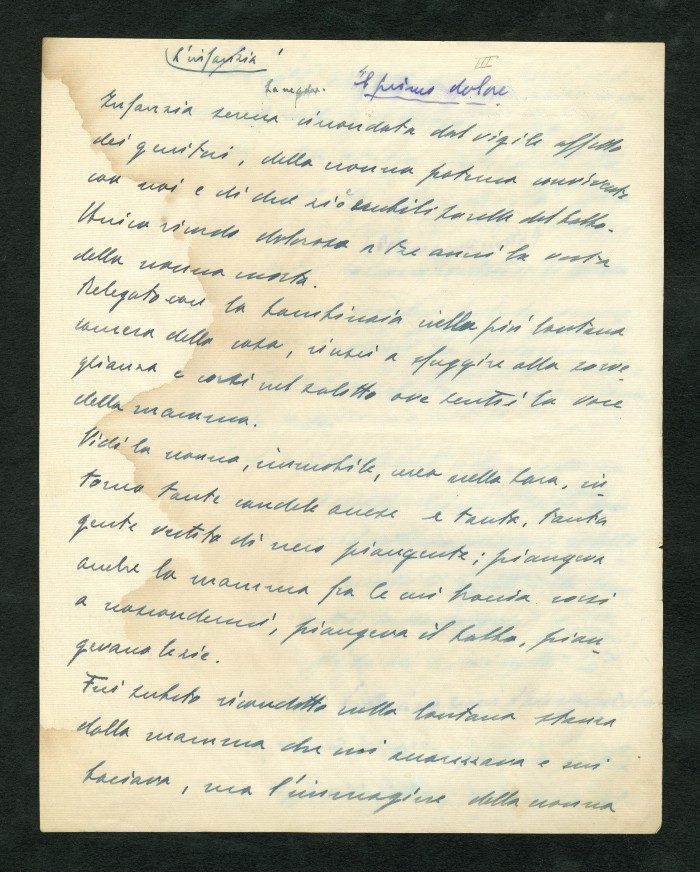 L'infanzia
III
La negdar.
Il primo dolore
Infanzia serena circondata dal vigile affetto
dei genitori, della nonna paterna convivente
con noi e di due zie nubili sorelle del babbo.
Unico ricordo doloroso a tre anni la vista
della nonna morta.
Relegato con la bambinaia nella più lontana
camera della casa, riuscii a sfuggire alla sorve-
glianza e corsi nel salotto ove sentii la voce
della mamma.
Vidi la nonna, immobile, cerea nella bara, in-
torno tante candele accese e tanta, tanta
gente vestita di nero piangente; piangeva
anche la mamma fra le cui braccia corsi
a nascondermi, piangeva il babbo, pian-
gevano le zie.
Fui subito ricondotto nella lontana stanza
dalla mamma che mi accarezzava e mi
baciava, ma l'immagine della nonna